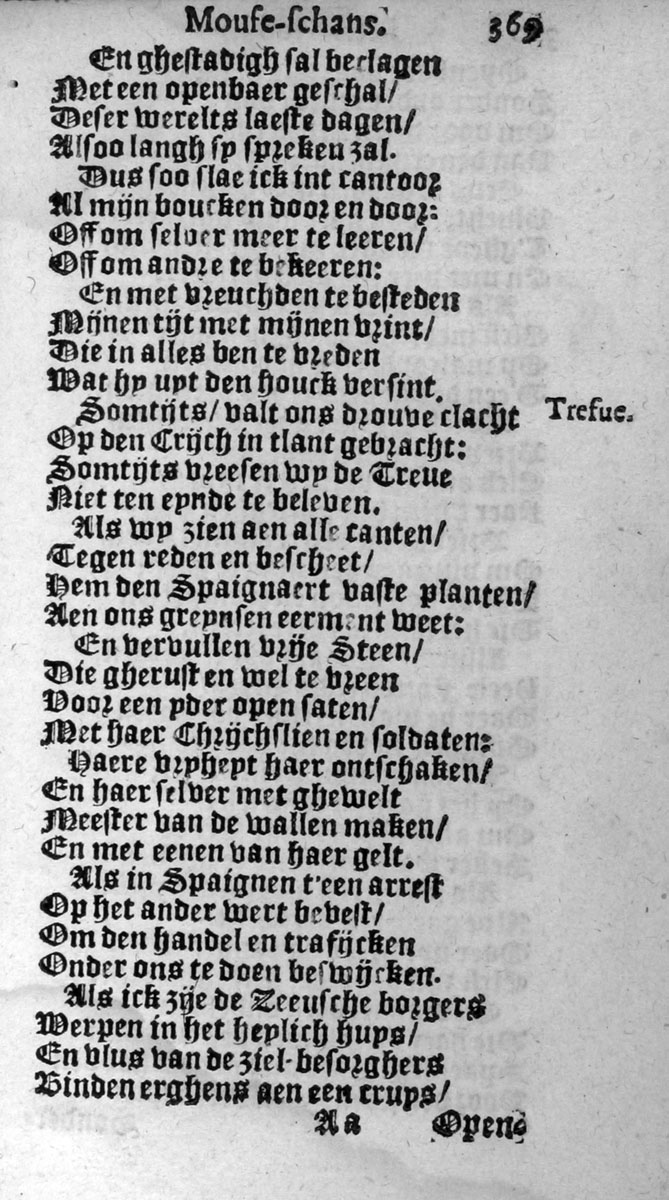 Moufe-schans. 369
En ghestadigh sal beclagen
Met een openbaer geschal/
Deser werelts laeste dagen/
Alsoo langh sy spreken zal.
Dus soo slae ick int cantoor
Al mijn boucken door en door:
Off om selver meer te leeren/
Off om andre te bekeeren:
En met vreuchden te besteden
Mijnen tijt met mijnen vrint/
Die in alles ben te vreden
Wat hy uyt den houck versint.
Somtijts/ valt ons drouve clacht Trefue.
Op den Crijch in tlant gebracht:
Somtijts vreesen wy de Treve
Niet ten eynde te beleven.
Als wy zien aen alle canten/
Tegen reden en bescheet/
Hem den Spaignaert vaste planten/
Aen ons greynsen eerment weet:
En vervullen vrije Steen/
Die gherust en wel te vreen
Voor een yder open saten/
Met haer Chrijchslien en soldaten:
Haere vryheyt haer ontschaken/
En haer selver met ghewelt
Meester van de wallen maken/
En met eenen van haer gelt.
Als in Spaignen t'een arrest
Op het ander wert bevest/
Om den handel en trafijcken
Onder ons te doen beswijcken.
Als ick zije de Zeeusche borgers
Werpen in het heylich huys/
En vlus van de ziel-besorghers
Binden erghens aen een cruys/
Aa Open-